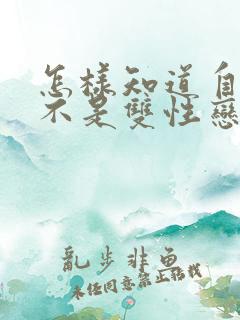 怎樣知道自
不是雙性戀
亂步非魚
未經同意禁止轉載